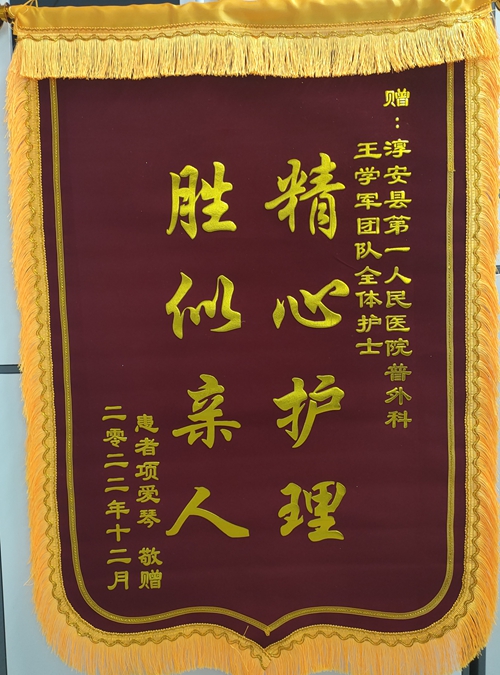 赠：淳安县第一人民医院普外科
王学军团队全体护士
精心护理
胜似亲人
患者项爱琴 敬赠
二零二二年十二月